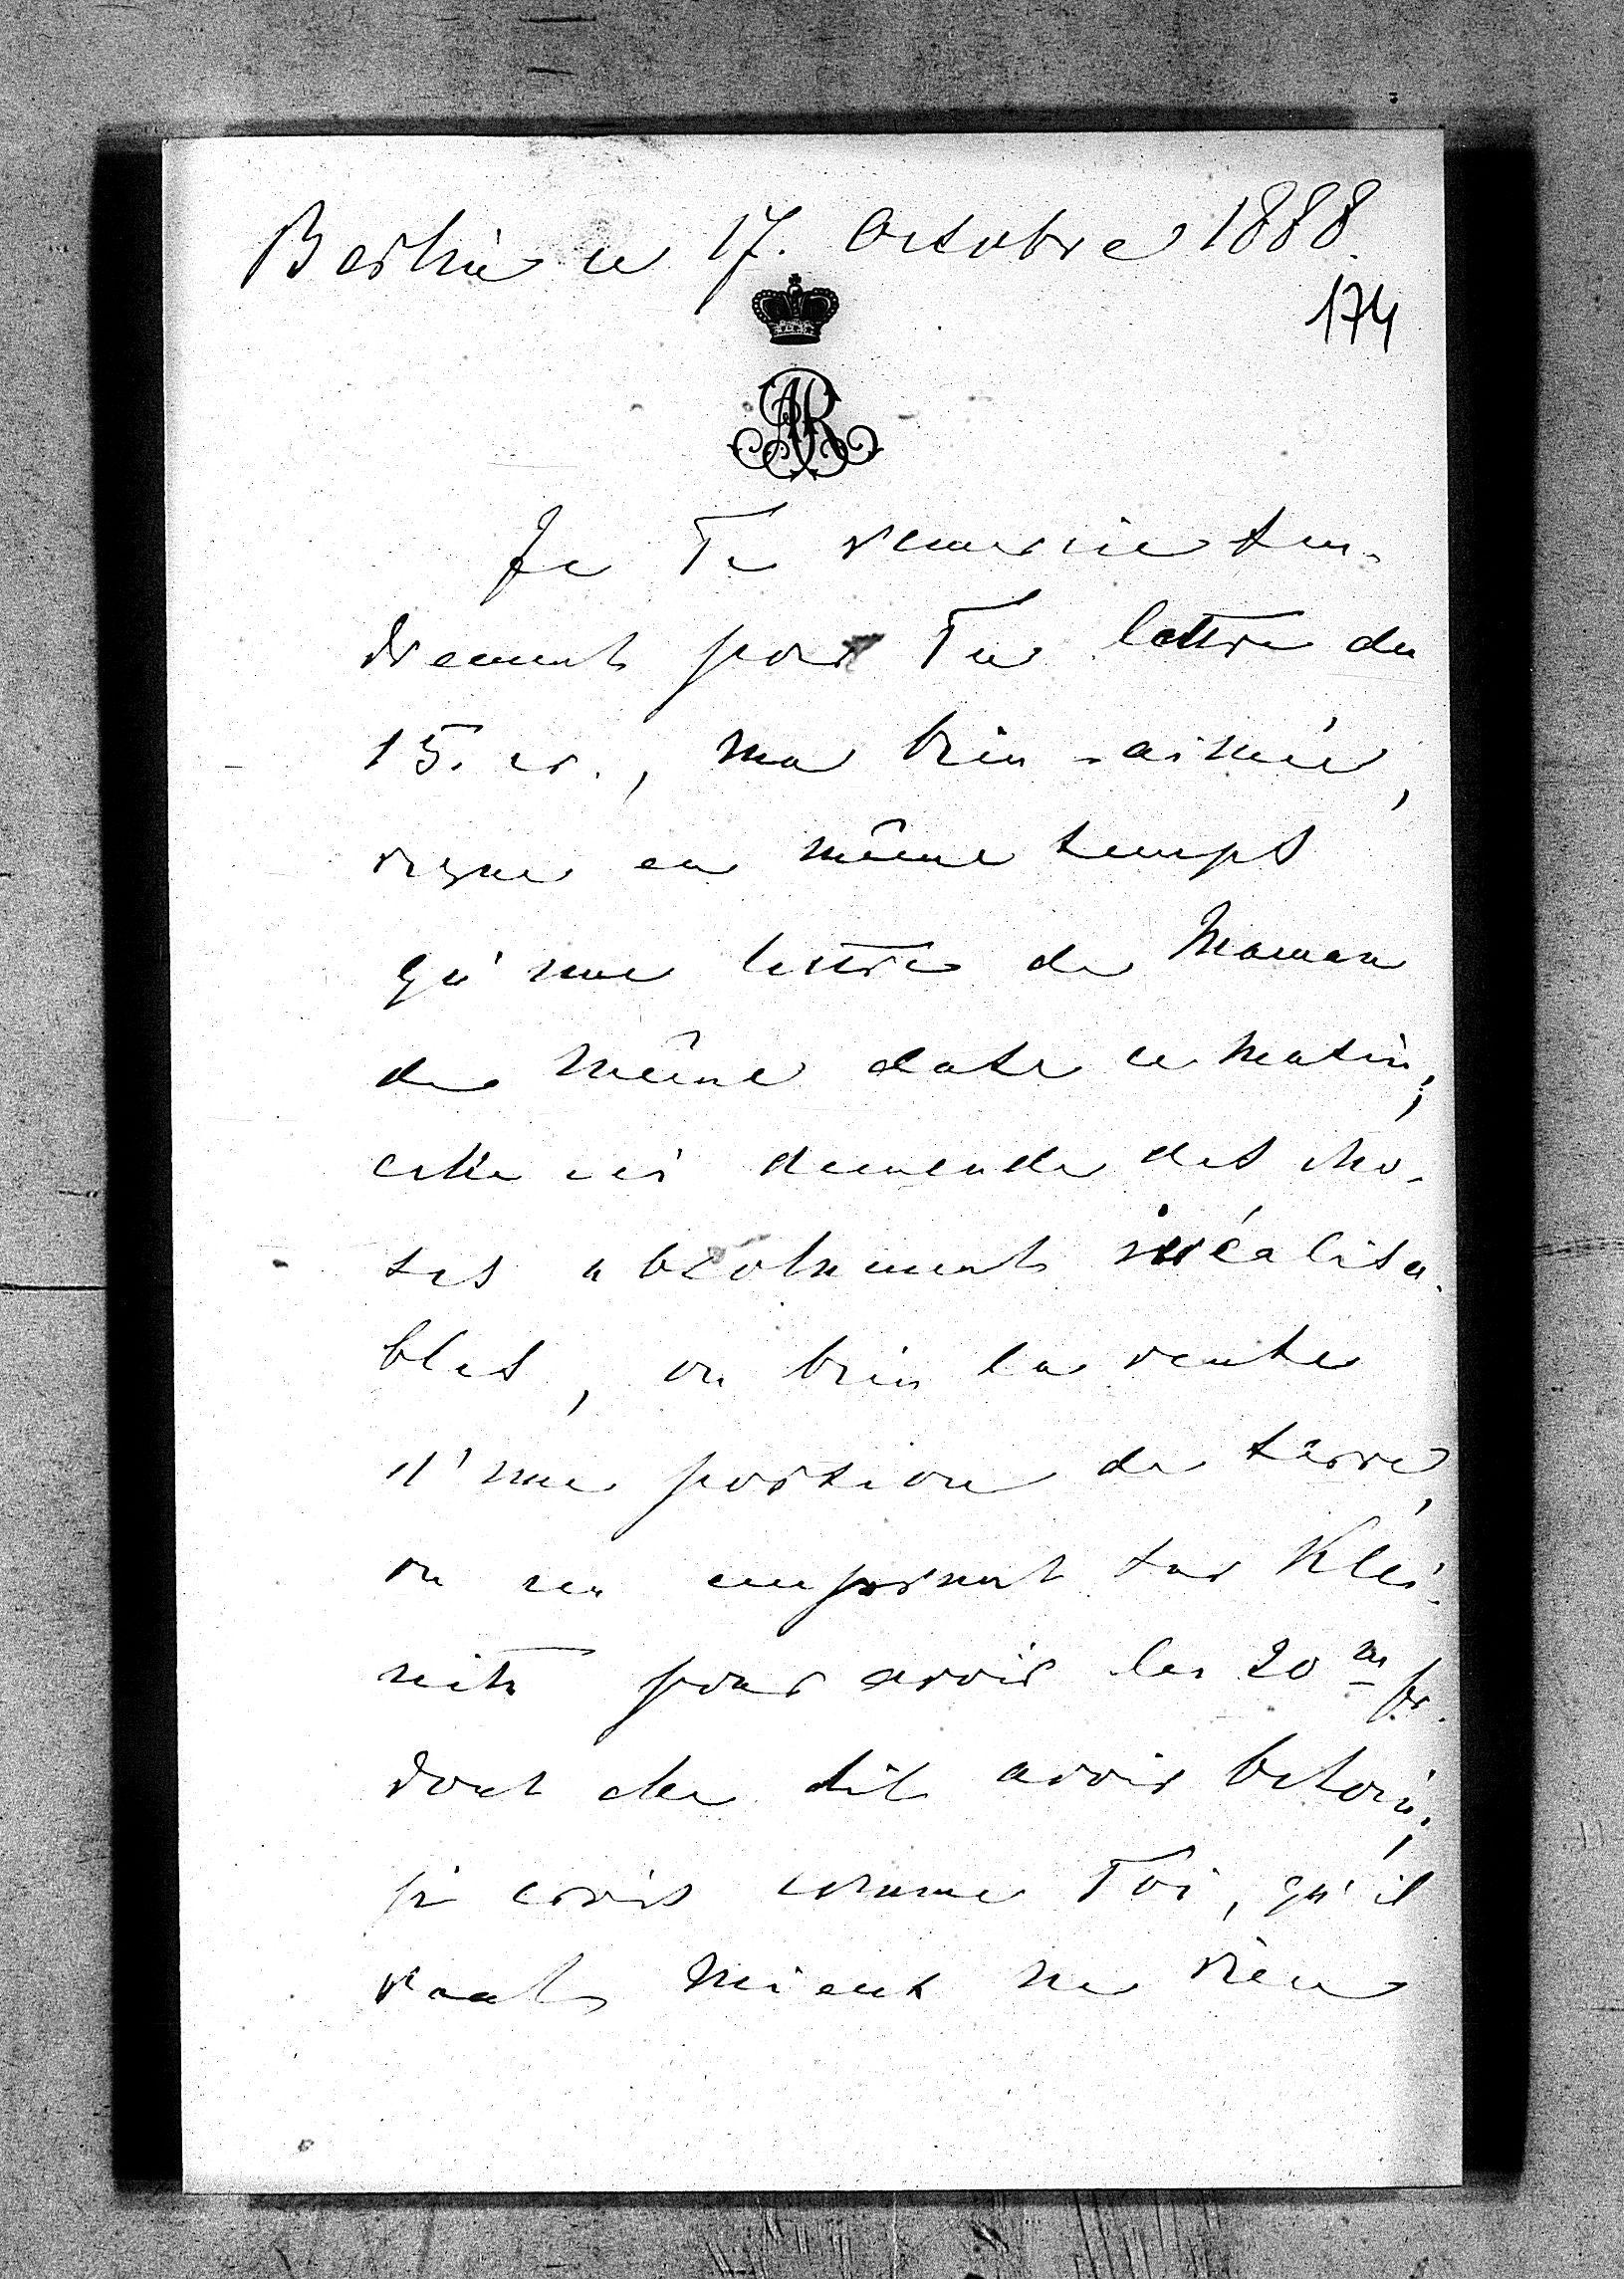 Berlin ce 17. Octobre 1888.
174
AR
Je Te remercie ten-
drement pour Ta lettre du
15. cr., ma bien-aimée,
reçue en même temps
qu'une lettre de Maman
de même date ce matin;
celle ci demande des cho-
ses absolument irréalisa-
bles, ou bien la vente
d'une portion de terre,
ou un emprunt sur Klei-
nitz pour avoir les 20 m fr.
dont elle dit avoir besoin;
je crois comme Toi, qu'il
vaut mieux ne rien